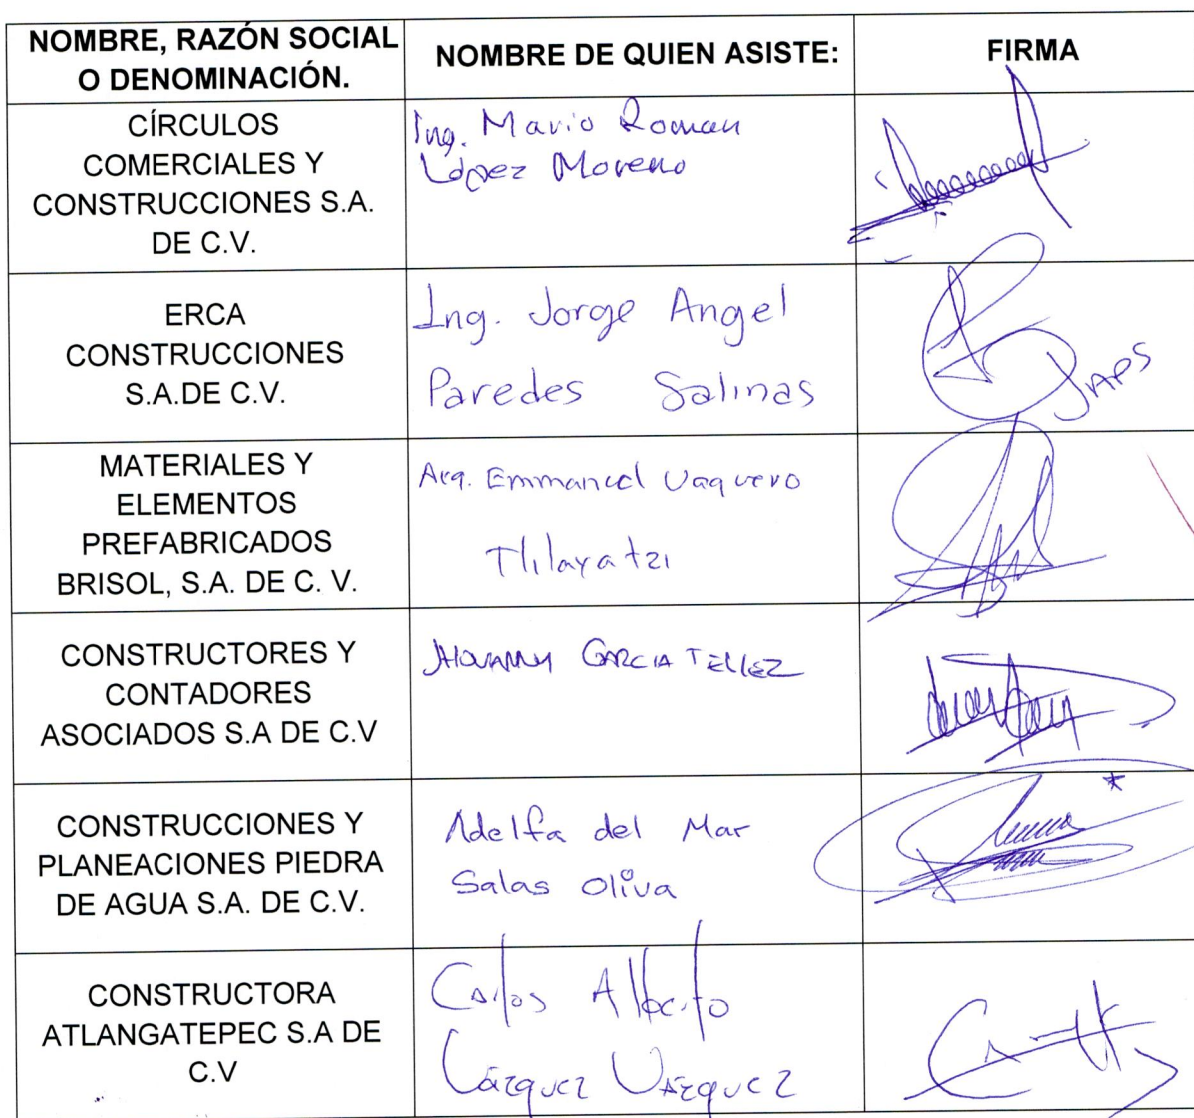 NOMBRE, RAZÓN SOCIAL
O DENOMINACIÓN.
NOMBRE DE QUIEN ASISTE:
FIRMA
CÍRCULOS
COMERCIALES Y
CONSTRUCCIONES S.A.
DE C.V.
Ing. Mario Roman
López Moreno
ERCA
CONSTRUCCIONES
S.A.DE C.V.
Ing. Jorge Angel
Paredes Salinas
JAPS
MATERIALES Y
ELEMENTOS
PREFABRICADOS
BRISOL, S.A. DE C. V.
Arq. Emmanuel Vaquero
Tlilayatzi
CONSTRUCTORES Y
CONTADORES
ASOCIADOS S.A DE C.V
GARCIA TELLEZ
CONSTRUCCIONES Y
PLANEACIONES PIEDRA
DE AGUA S.A. DE C.V.
Adelfa del Mar
Salas Oliva
CONSTRUCTORA
ATLANGATEPEC S.A DE
C.V
Carlos Alberto
Vázquez